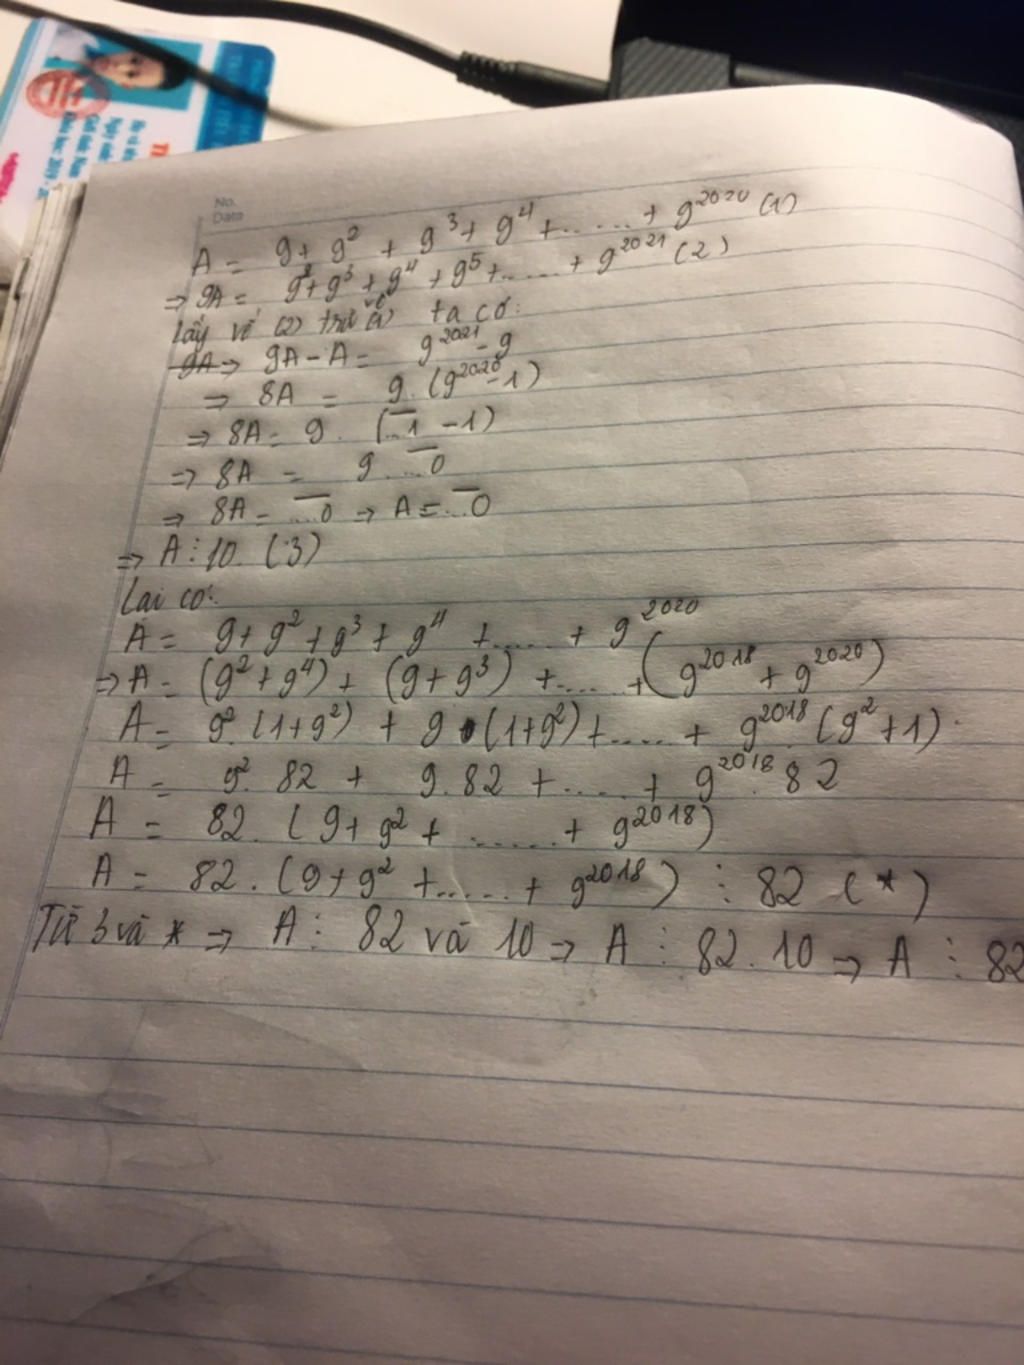 No.
Date
A = 9 + 9² + 9³ + 9⁴ + ...... + 9²⁰²⁰ (1)
⇒ 9A = 9² + 9³ + 9⁴ + 9⁵ + ...... + 9²⁰²¹ (2)
Lấy vế (2) trừ vế (1) ta có:
9A ⇒ 9A - A = 9²⁰²¹ - 9
⇒ 8A = 9. (9²⁰²⁰ - 1)
⇒ 8A = 9. (...1̅ - 1)
⇒ 8A = 9 ...0̅
⇒ 8A = ...0̅ → A = ...0̅
⇒ A ⋮ 10. (3)
Lại có:
A = 9 + 9² + 9³ + 9⁴ + ...... + 9²⁰²⁰
⇒ A = (9² + 9⁴) + (9 + 9³) + ...... + (9²⁰¹⁸ + 9²⁰²⁰)
A = 9². (1 + 9²) + 9 . (1 + 9²) + ...... + 9²⁰¹⁸. (9² + 1).
A = 9². 82 + 9. 82 + ...... + 9²⁰¹⁸. 82
A = 82. (9 + 9² + ...... + 9²⁰¹⁸)
A = 82. (9 + 9² + ...... + 9²⁰¹⁸) ⋮ 82 (*)
Từ 3 và * ⇒ A ⋮ 82 và 10 ⇒ A ⋮ 82. 10 ⇒ A ⋮ 82